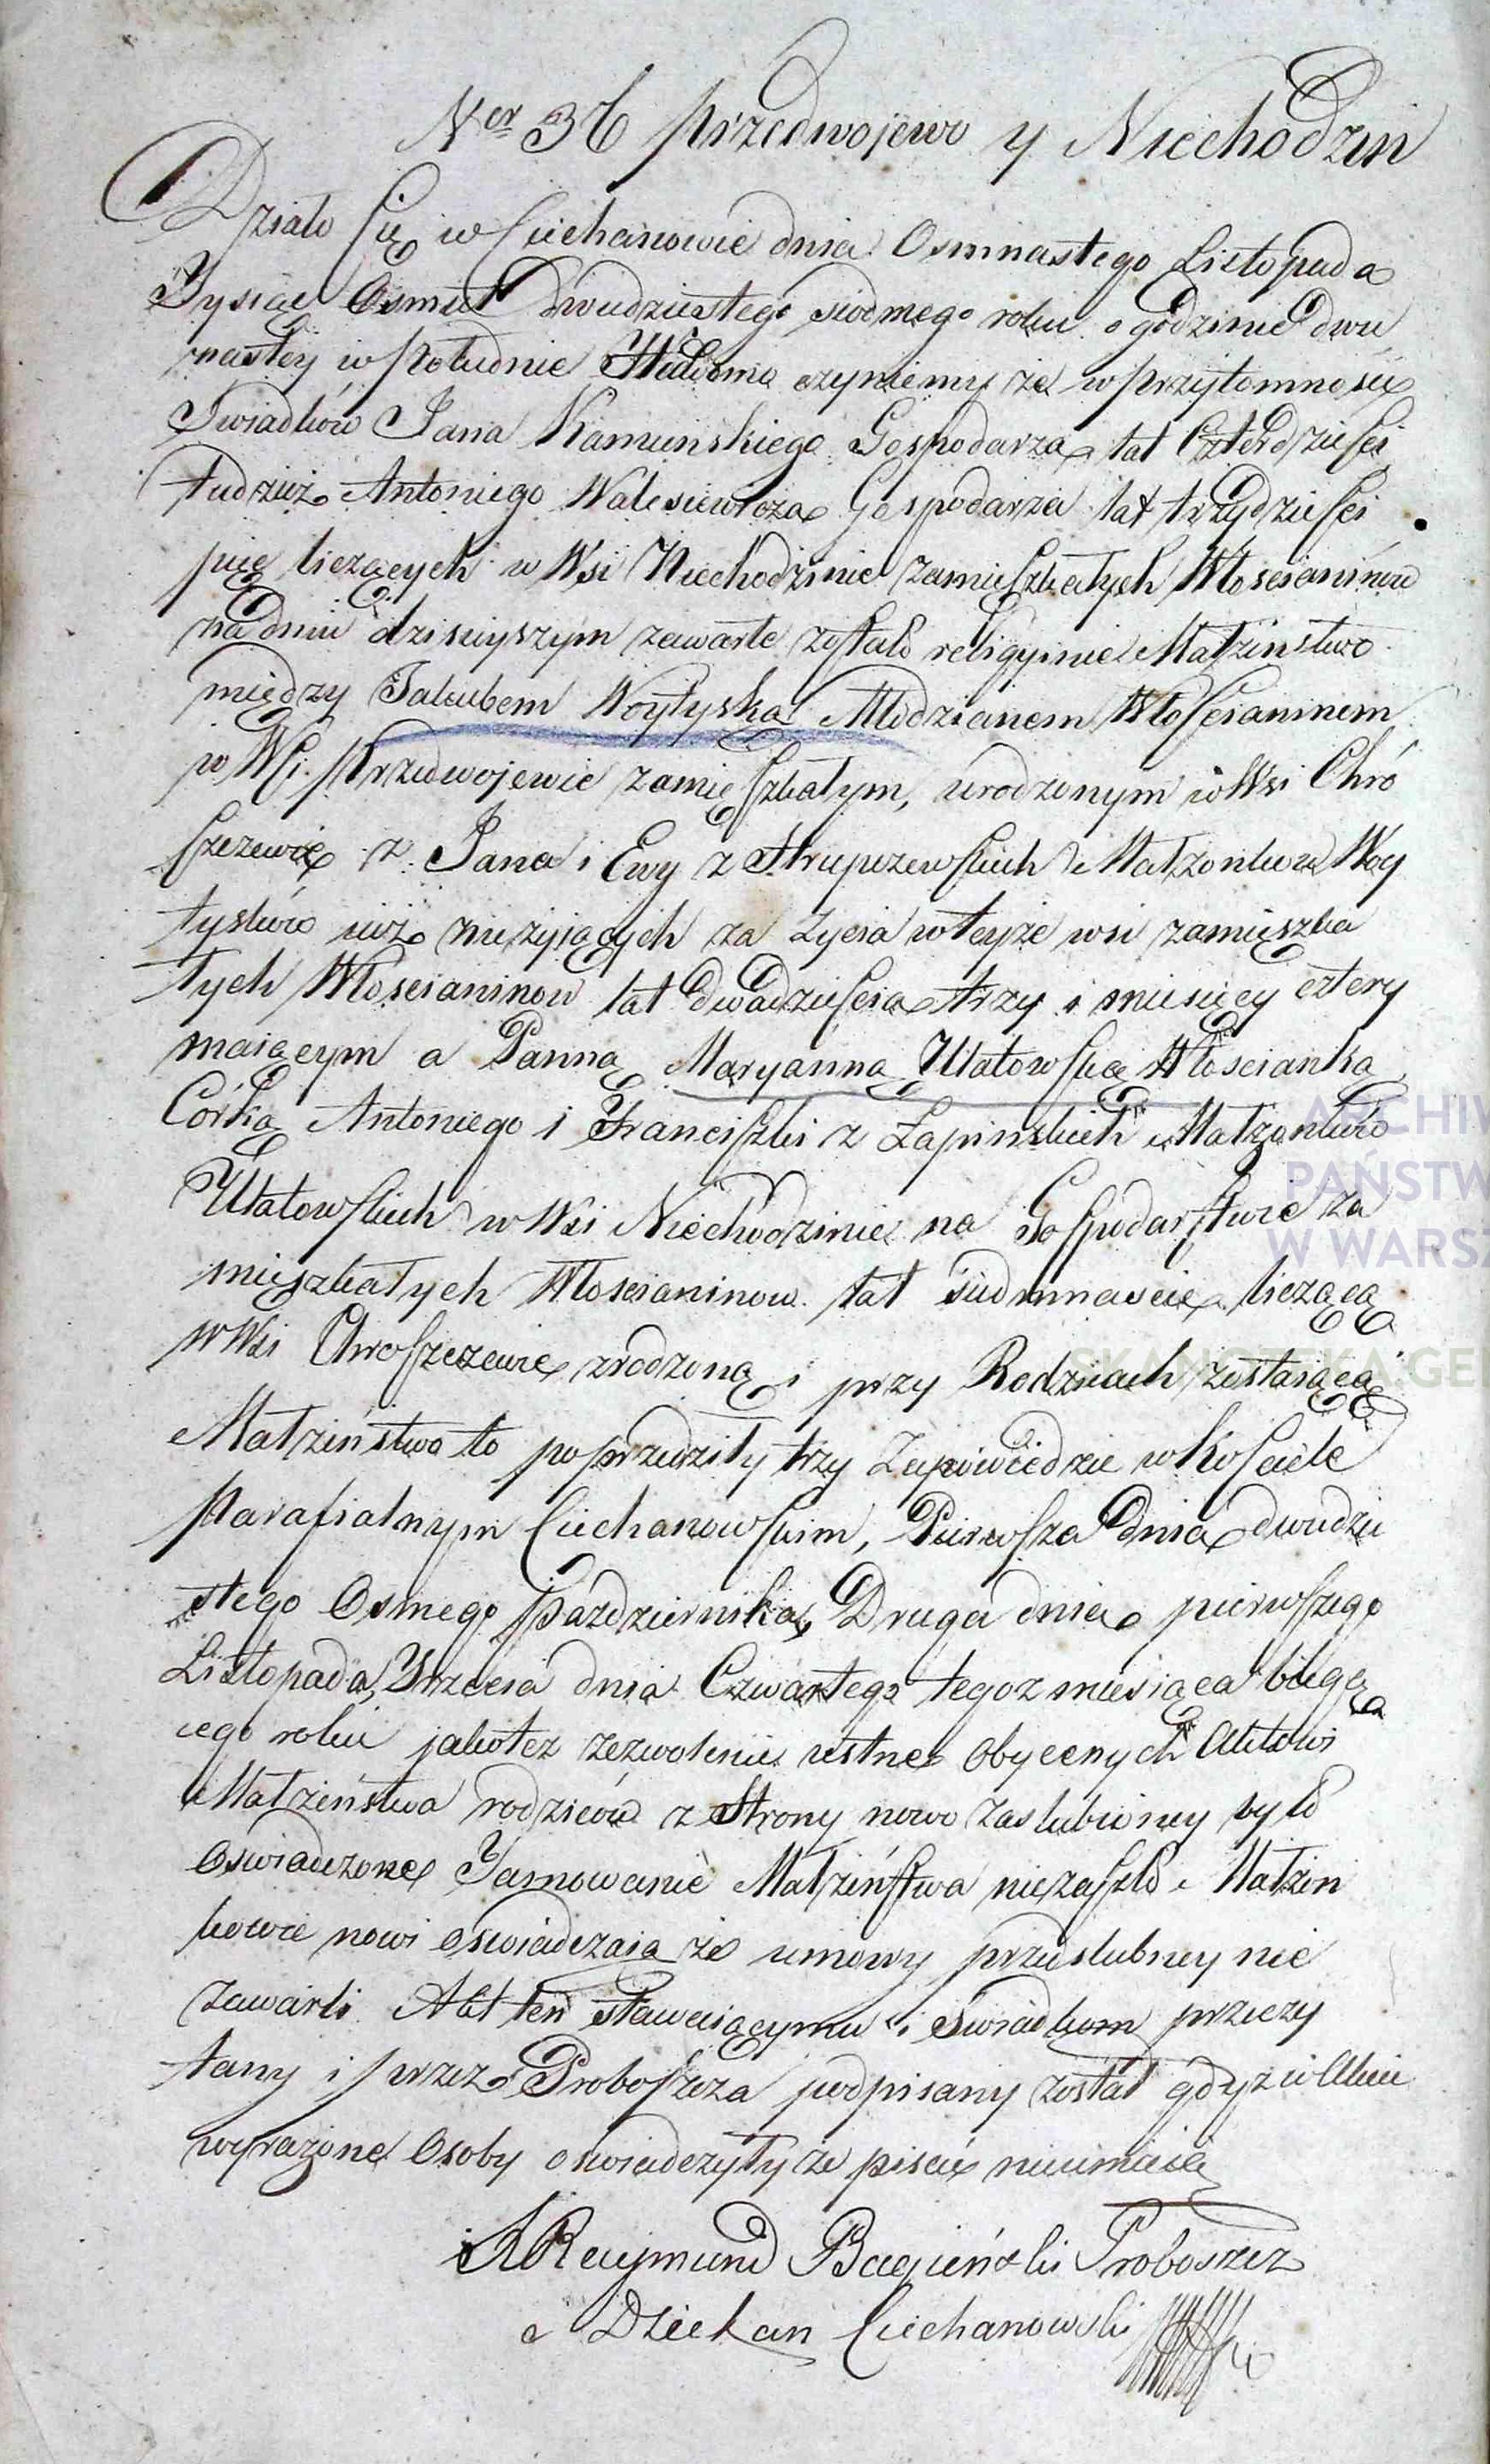 Ner 36 Przedwojewo y Niechodzin
Działo się w Ciechanowie dnia Osmnastego Listopada
Tysiac Osmset Dwudziestego siodmego roku o godzinie dwu
nastey w Południe Wiadomo czyniemy że w przytomnosci
Swiadków Jana Kamienskiego Gospodarza lat Czterdziesci
tudzież Antoniego Walesiewicza Gospodarza lat trzydziesci
pięc liczących w Wsi Niechodzinie zamieszkałych Włoscianinów
na dniu dzisieyszym zawarte zostało religyinie Małżeństwo
między Jakubem Woytyską Młodzianem Włoscianinem
w Wsi Przedwojewie zamieszkałym, urodzonym w Wsi Chró
szczewie z Jana i Ewy z Strupczewskich Małżonków Woy
tysków iuż nieżyjących za życia w teyże wsi zamieszka
łych Włoscianinow lat dwadziescia trzy i miesięcy cztery
maiącym a Panną Maryanną Ułatowską Włoscianką
Córką Antoniego i Franciszki z Łapinskich Małżonków
Ułatowskich w Wsi Niechodzinie na Gospodarstwie za
mieszkałych Włoscianinow lat siedmnascie liczącą
w Wsi Chroszczewie zrodzoną i przy Rodzicach zostaiącą
Małżeństwo to poprzedziły trzy Zapowiedzie w Kosciele
Parafialnym Ciechanowskim, Pierwsza Dnia dwudzie
stego Osmego Października, Druga dnia pierwszego
Listopada, Trzecia dnia Czwartego tegoż miesiąca biegą
cego roku jakoteż zezwolenie ustne obycenych Aktowi
Małżeństwa rodziców z Strony nowo zaslubioney było
Oswiadczone Tamowanie Małżeństwa niezaszło Małżon
kowie nowi Oswiadczaią że umowy przedslubney nie
zawarli Akt ten stawaiącymu i Swiadkom przeczy
tany i przez Proboszcza podpisany został gdyż w Akcie
wyrażone Osoby oswiadczyły że pisać nieumieią
X Raymund Bagieński Proboszcz
Dziekan Ciechanowski
ARCHIW
PAŃSTW
W WARSZ
SKANOTEKA GEN